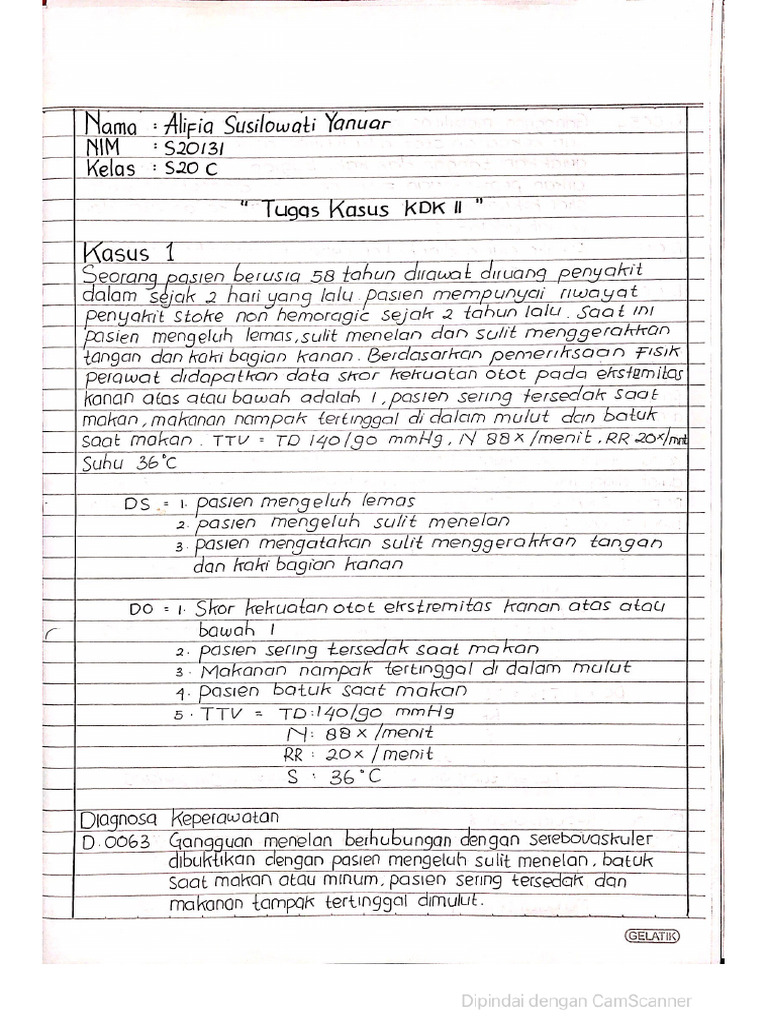 Nama : Alifia Susilowati Yanuar
NIM : S20131
Kelas : S20 C
" Tugas Kasus KDK II "
Kasus 1
Seorang pasien berusia 58 tahun dirawat diruang penyakit
dalam sejak 2 hari yang lalu pasien mempunyai riwayat
penyakit stoke non hemoragic sejak 2 tahun lalu. Saat ini
pasien mengeluh lemas, sulit menelan dan sulit menggerakkan
tangan dan kaki bagian kanan. Berdasarkan pemeriksaan Fisik
perawat didapatkan data skor kekuatan otot pada ekstemitas
kanan atas atau bawah adalah 1, pasien sering tersedak saat
makan, makanan nampak tertinggal di dalam mulut dan batuk
saat makan. TTV = TD 140/90 mmHg, N 88x/menit, RR 20x/mnt
Suhu 36°C
DS = 1. pasien mengeluh lemas
2. pasien mengeluh sulit menelan
3. pasien mengatakan sulit menggerakkan tangan
dan kaki bagian kanan
DO = 1. Skor kekuatan otot ekstremitas kanan atas atau
bawah 1
2. pasien sering tersedak saat makan
3. Makanan nampak tertinggal di dalam mulut
4. pasien batuk saat makan
5. TTV = TD : 140/90 mmHg
N : 88 x /menit
RR : 20x / menit
S : 36°C
Diagnosa Keperawatan
D.0063 Gangguan menelan berhubungan dengan serebovaskuler
dibuktikan dengan pasien mengeluh sulit menelan, batuk
saat makan atau minum, pasien sering tersedak dan
makanan tampak tertinggal dimulut.
GELATIK
Dipindai dengan CamScanner